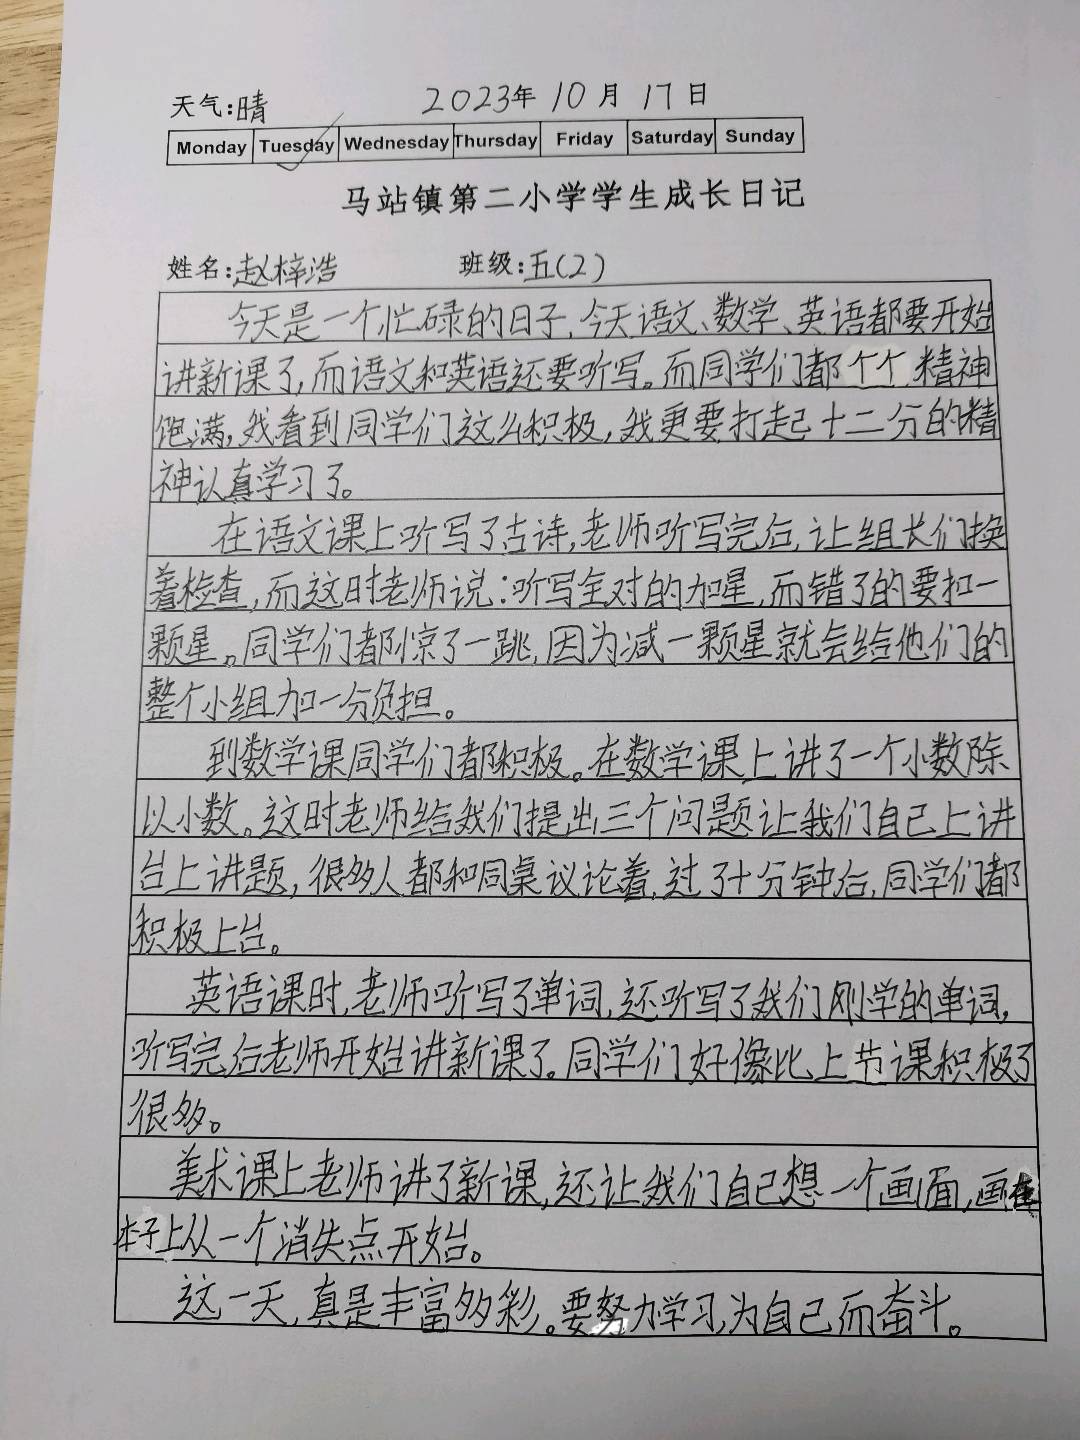 天气:晴 2023年 10 月 17 日
Monday Tuesday Wednesday Thursday Friday Saturday Sunday
马站镇第二小学学生成长日记
姓名:赵梓浩 班级:五(2)
今天是一个忙碌的日子,今天语文、数学、英语都要开始
讲新课了,而语文和英语还要听写。而同学们都个个精神
饱满,我看到同学们这么积极,我更要打起十二分的精
神认真学习了。
在语文课上听写了古诗,老师听写完后,让组长们换
着检查,而这时老师说:听写全对的加星,而错了的要扣一
颗星。同学们都惊了一跳,因为减一颗星就会给他们的
整个小组加一分负担。
到数学课同学们都积极。在数学课上讲了一个小数除
以小数。这时老师给我们提出三个问题让我们自己上讲
台上讲题,很多人都和同桌议论着,过了十分钟后,同学们都
积极上台。
英语课时,老师听写了单词,还听写了我们刚学的单词,
听写完后老师开始讲新课了。同学们好像比上节课积极了
很多。
美术课上老师讲了新课,还让我们自己想一个画面,画在
本子上从一个消失点开始。
这一天,真是丰富多彩。要努力学习,为自己而奋斗。